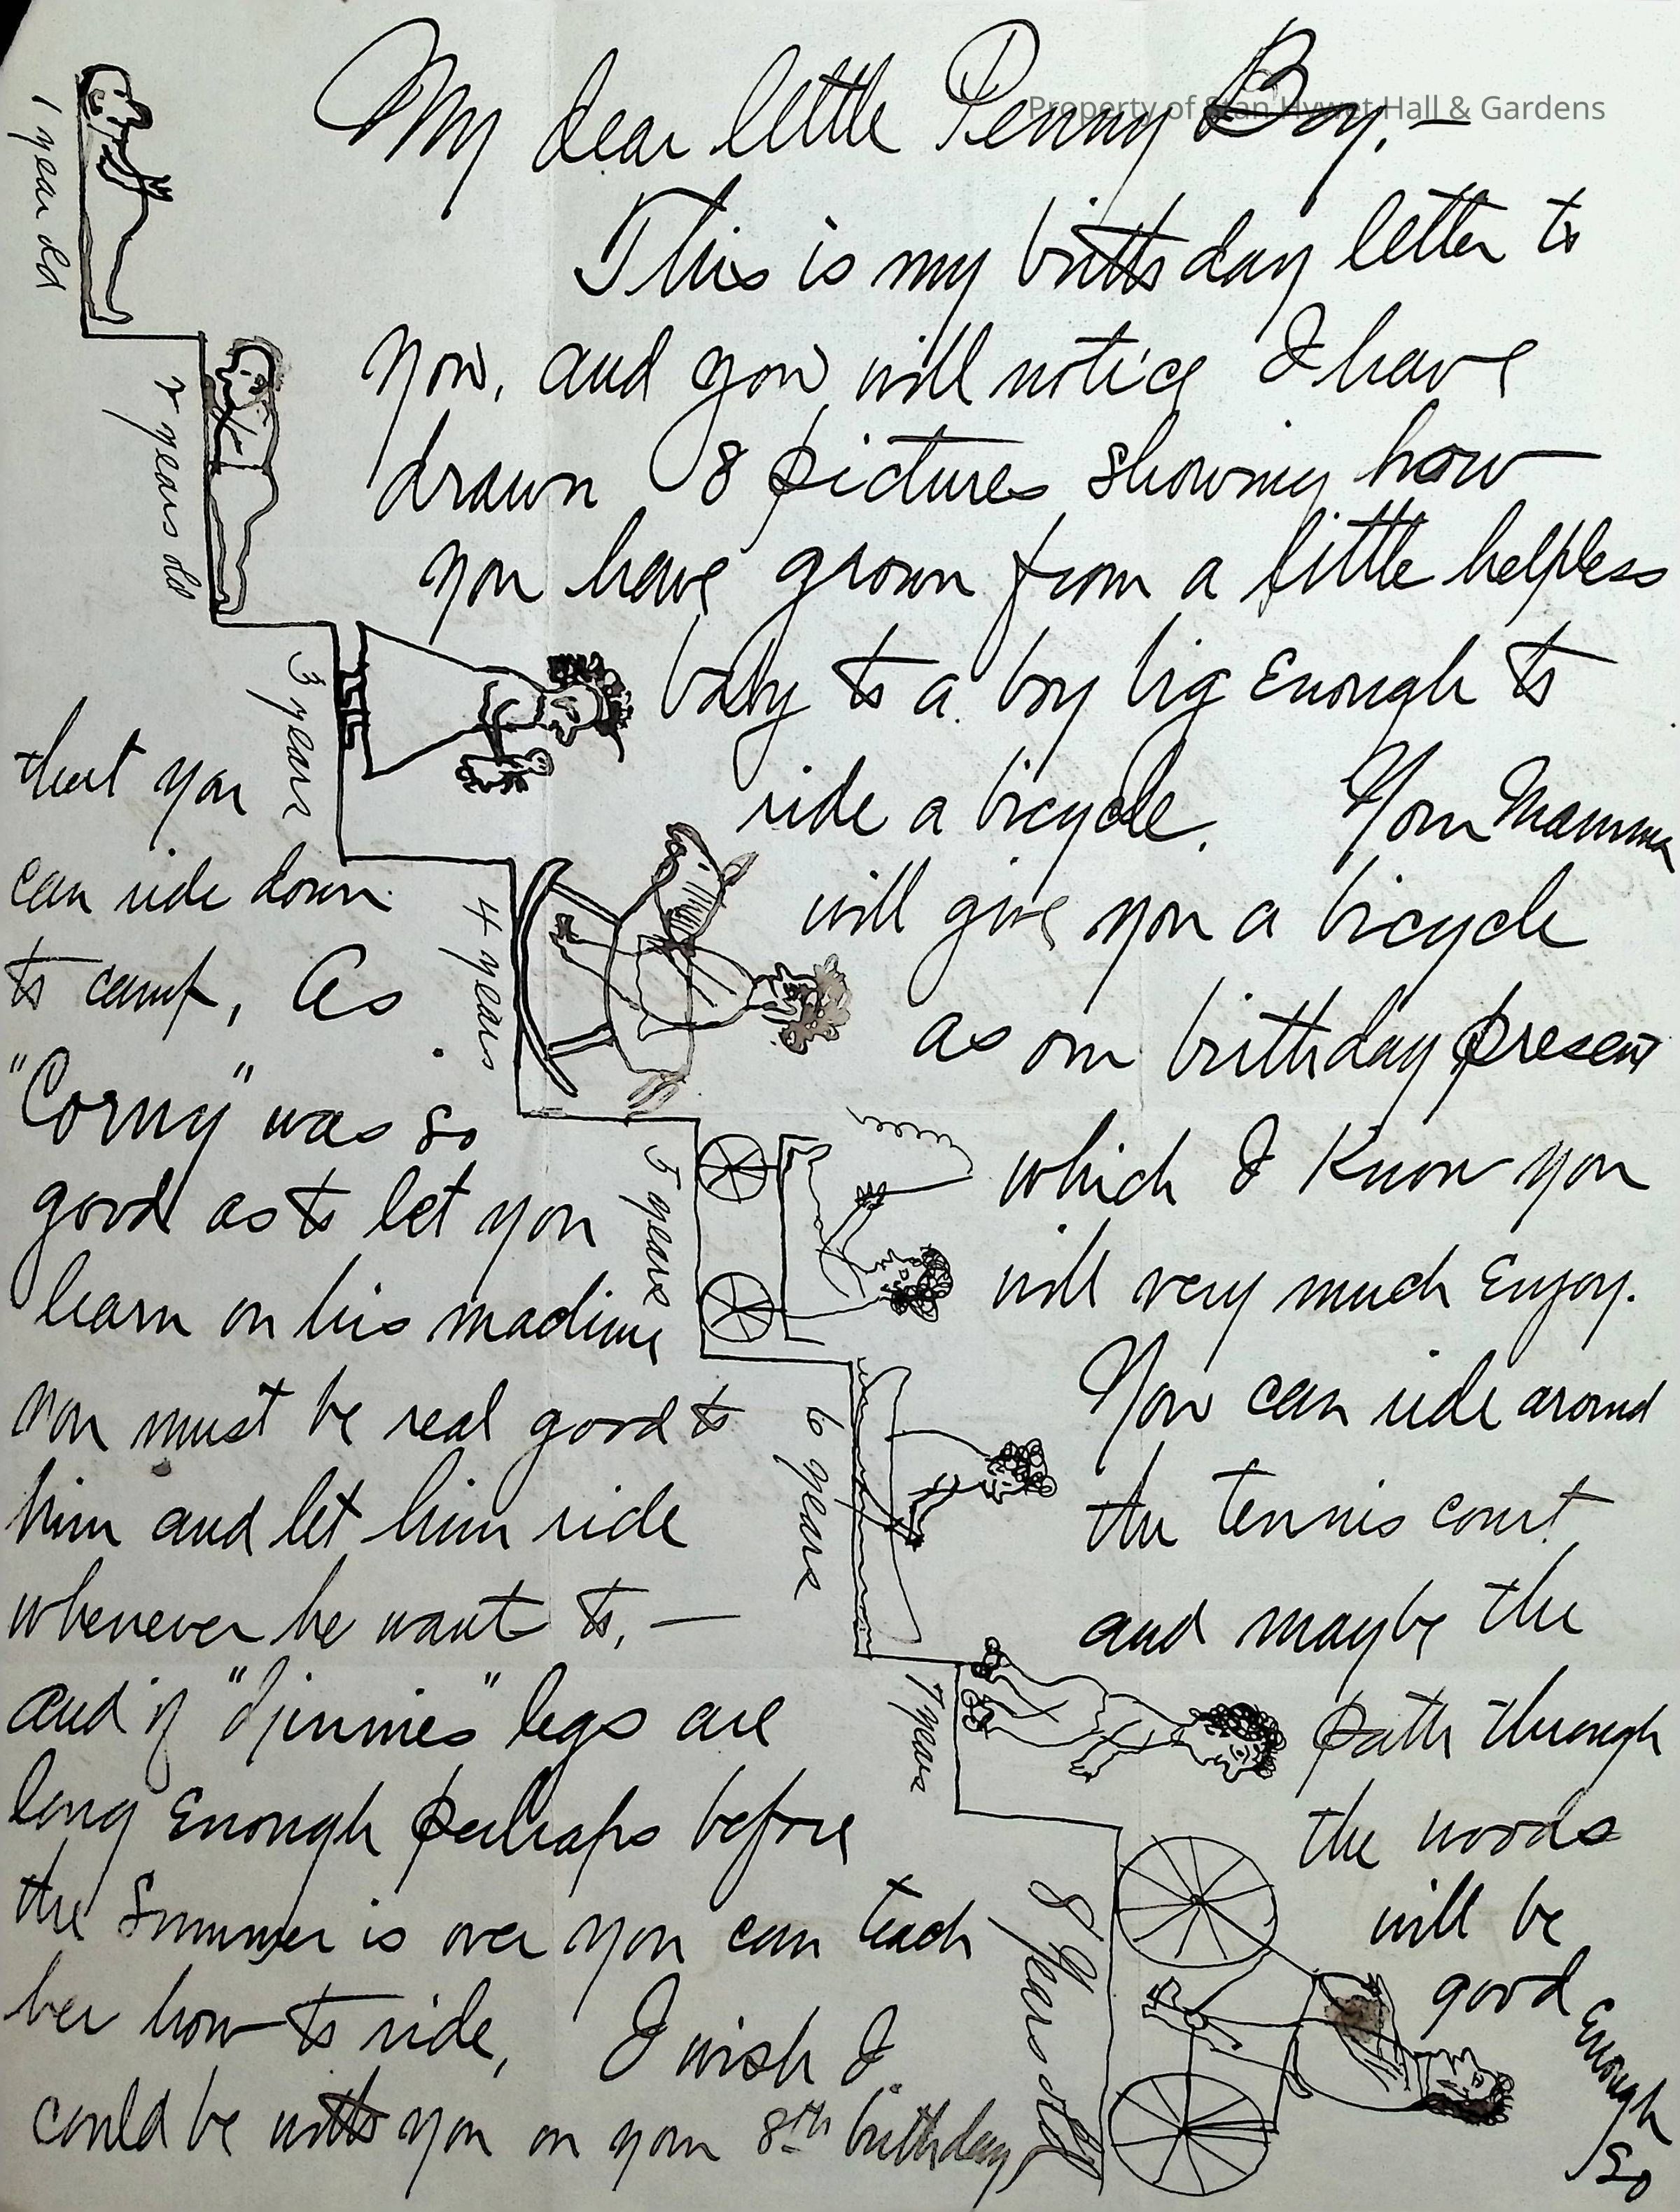 Property of Stan Hywet Hall & Gardens
My dear little Penny Boy,—
This is my birthday letter to
you, and you will notice I have
drawn 8 pictures showing how
you have grown from a little helpless
baby to a boy big Enough to
ride a bicycle. Your Mamma
will give you a bicycle
as our birthday present
which I Know you
will very much Enjoy.
You can ride around
the tennis court
and maybe the
path through
the woods
will be
good
Enough
so
that you
can ride down
to camp, As
"Corny" was so
good as to let you
learn on his machine
you must be real good to
him and let him ride
whenever he want to, —
and if "Jinnies" legs are
long Enough perhaps before
the Summer is over you can teach
her how to ride, I wish I
could be with you on your 8th birthday
1 year old
2 years old
3 years
4 years
5 years
6 years
7 years
8 Years old